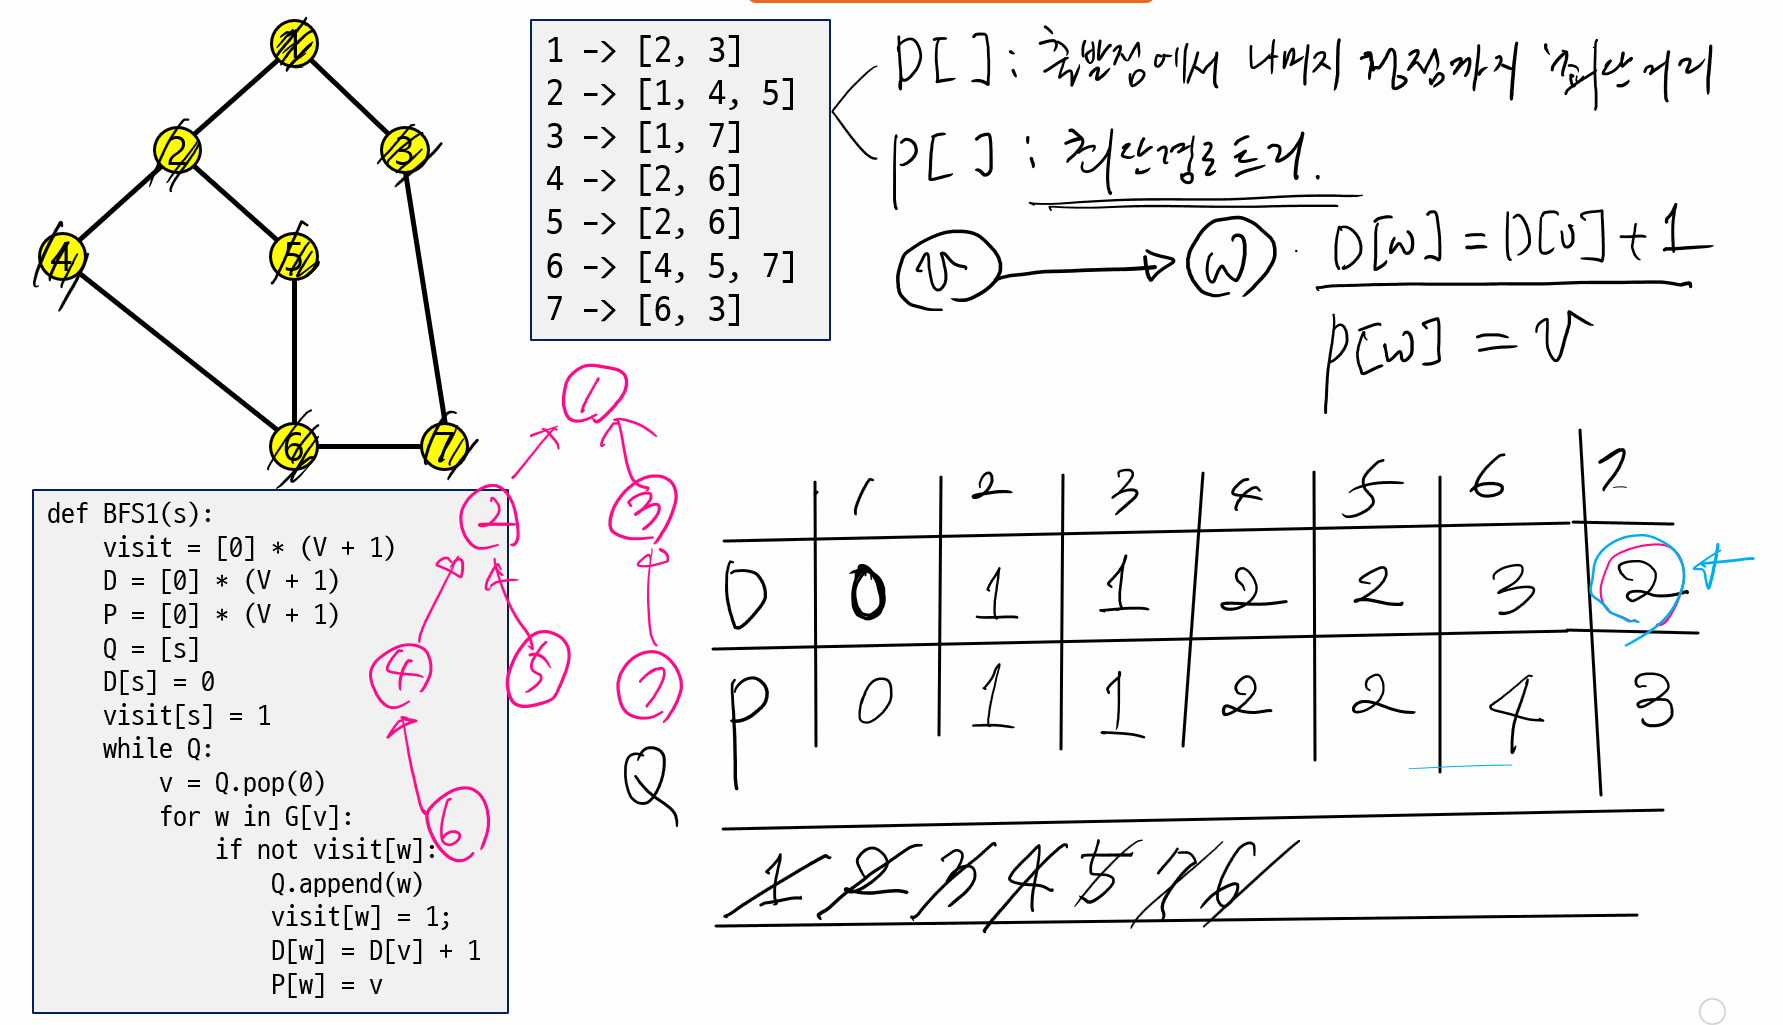 1
2
3
4
5
6
7
1 -> [2, 3]
2 -> [1, 4, 5]
3 -> [1, 7]
4 -> [2, 6]
5 -> [2, 6]
6 -> [4, 5, 7]
7 -> [6, 3]
D[ ] : 출발점에서 나머지 정점까지 최단거리
P[ ] : 최단경로트리.
v w D[w] = D[v] + 1
P[w] = v
def BFS1(s):
visit = [0] * (V + 1)
D = [0] * (V + 1)
P = [0] * (V + 1)
Q = [s]
D[s] = 0
visit[s] = 1
while Q:
v = Q.pop(0)
for w in G[v]:
if not visit[w]:
Q.append(w)
visit[w] = 1;
D[w] = D[v] + 1
P[w] = v
1
2 3
4 5 7
6
1 2 3 4 5 6 7
D 0 1 1 2 2 3 2
P 0 1 1 2 2 4 3
Q
1 2 3 4 5 7 6